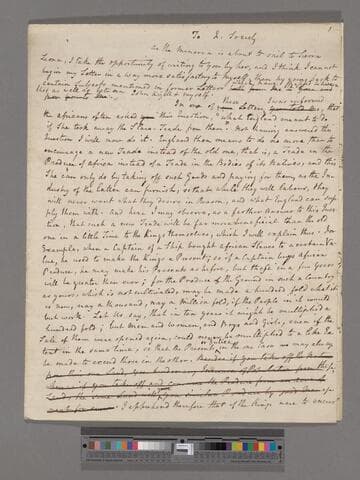 1
To D. Tozely
As the Menerva is about to sail to Sierra
Leone, I take the opportunity of writing to you by her, and I think I cannot
begin my Letter in a way more satisfactory to myself, than by going back to
certain Subjects mentioned in former Letters
as well as to
In one of these Letters, I was informed that
the africans often asked you this Question, "what England meant to do
if She took away the Slave Trade from them". Not having answered the
Question I will now do it. England then means to do no more than to
encourage a new Trade instead of the old one, that is, a Trade in the
Produce of africa instead of a Trade in the Bodies of its Natives; and this
She can only do by taking off such Goods and paying for them, as the In-
dustry of the latter can furnish; so that while they will labour, they
will never want what they desire in Return, and what England can sup-
ply them with. And here I may observe, as a further answer to this Ques-
tion, that such a new Trade will be far more beneficial than the old
one in a little Time to the Kings themselves, which I will explain thus. For
Example, when a Captain of a Ship bought african Slaves to a certain Va-
lue, he used to make the King a Present; so if a Captain buys african
Produce, he may make his Presents as before, but these in a few Years
will be greater than ever; for the Produce of the Ground in such a Country
as yours, which is not cultivated, may be made a hundred fold what it
is now, nay a thousand, nay a million fold, if the People in it would
but work. Let us say, that in ten years it might be multiplied a
hundred fold; but Men and women, and Boys and Girls, even if the
Sale of them were opened again, could never be multiplied to a like Ex-
tent in the same time, so that the Presents in the one Case may always
be made to exceed those in the other.
I apprehend therefore that if the Kings were to encou-